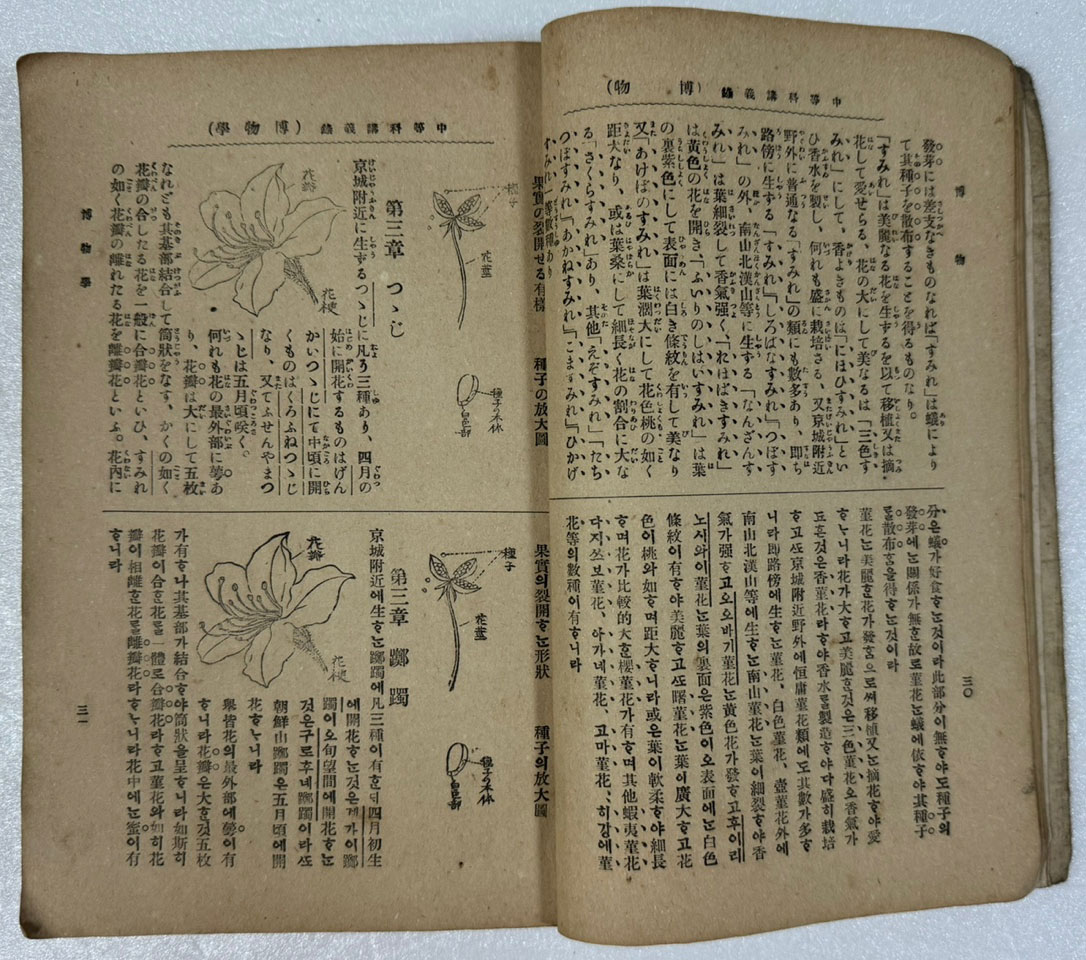 中等科講義錄(博物)
博物
三〇
發芽には差支なきものなれば「すみれ」は蟻により
て其種子を散布することを得るものなり。
「すみれ」は美麗なる花を生ずるを以て移植又は摘
花して愛せらる、花の大にして美なるは「三色す
みれ」にして、香よきものは「にほひすみれ」とい
ひ香水を製し、何れも盛に栽培さる、又京城附近
野外に普通なる「すみれ」の類にも數多あり、即ち
路傍に生ずる「すみれ」「しろばなすみれ」「つぼす
みれ」の外、南山北漢山等に生ずる「なんざんす
みれ」は葉細裂して香氣强く、「れはばきすみれ」
は黃色の花を開き、「ふいりのしはいすみれ」は葉
の裏紫色にして表面には白き條紋を有して美なり
又「あけぼのすみれ」は葉濶大にして花色桃の如く
距大なり、或は葉柔にして細長く花の割合に大な
る「さくらすみれ」あり、其他「えぞすみれ」「たち
つぼすみれ」「あかねすみれ」「こますみれ」「ひかげ
すみれ」等數種あり
分은蟻가好食ᄒᆞᄂᆞᆫ것이라此部分이無ᄒᆞ야도種子의
發芽에ᄂᆞᆫ關係가無ᄒᆞᆫ故로菫花ᄂᆞᆫ蟻에依ᄒᆞ야其種子
ᄅᆞᆯ散布ᄒᆞᆷ을得ᄒᆞᄂᆞᆫ것이라
菫花ᄂᆞᆫ美麗ᄒᆞᆫ花가發ᄒᆞᆷ으로써移植又ᄂᆞᆫ摘花ᄒᆞ야愛
ᄒᆞᄂᆞ니라花가大ᄒᆞ고美麗ᄒᆞᆫ것은三色菫花오香氣가
됴흔것은香菫花라ᄒᆞ야香水ᄅᆞᆯ製造ᄒᆞ야다盛히栽培
ᄒᆞ고ᄯᅩ京城附近野外에恒庸菫花類에도其數가多ᄒᆞ
니라即路傍에生ᄒᆞᄂᆞᆫ菫花、白色菫花、壺菫花外에
南山北漢山等에生ᄒᆞᄂᆞᆫ南山菫花ᄂᆞᆫ葉이細裂ᄒᆞ야香
氣가强ᄒᆞ고오오바기菫花ᄂᆞᆫ黃色花가發ᄒᆞ고후이리
노시와이菫花ᄂᆞᆫ葉의裏面은紫色이오表面에ᄂᆞᆫ白色
條紋이有ᄒᆞ야美麗ᄒᆞ고ᄯᅩ曙菫花ᄂᆞᆫ葉이廣大ᄒᆞ고花
色이桃와如ᄒᆞ며距大ᄒᆞ니라或은葉이軟柔ᄒᆞ야細長
ᄒᆞ며花가比較的大ᄒᆞᆫ櫻菫花가有ᄒᆞ며其他蝦夷菫花
다지쓰보菫花、아가네菫花、고마菫花、히강에菫
花等의數種이有ᄒᆞ니라
中等科講義錄(博物學)
果實の裂開せる有樣
種子
花莖
種子の放大圖
種子の本体
白色部
第三章 つゝじ
京城附近に生ずるつゝじに凡う三種あり、四月の
始に開花するものはげん
かいつゝじにて中頃に開
くものはくろふねつゝじ
なり、又てふせんやまつ
ゝじは五月頃咲く。
何れも花の最外部に萼あ
り、花瓣は大にして五枚
なれども其基部結合して筒狀をなす、かくの如く
花瓣の合したる花を一般に合瓣花といひ、すみれ
の如く花瓣の離れたる花を離瓣花といふ。花內に
花瓣
花梗
果實의裂開ᄒᆞᄂᆞᆫ形狀
種子
花莖
種子의放大圖
種子の本体
白色部
第三章 躑躅
京城附近에生ᄒᆞᄂᆞᆫ躑躅에凡三種이有ᄒᆞᆫᄃᆡ四月初生
에開花ᄒᆞᄂᆞᆫ것은게가이躑
躅이오旬望間에開花ᄒᆞᄂᆞᆫ
것은구로후네躑躅이라ᄯᅩ
朝鮮山躑躅은五月頃에開
花ᄒᆞᄂᆞ니라
擧皆花의最外部에萼이有
ᄒᆞ니라花瓣은大ᄒᆞᆫ것五枚
가有ᄒᆞ나其基部가結合ᄒᆞ야筒狀을呈ᄒᆞ니라如斯히
花瓣이合ᄒᆞᆫ花ᄅᆞᆯ一體로合瓣花라ᄒᆞ고菫花와如히花
瓣이相離ᄒᆞᆫ花ᄅᆞᆯ離瓣花라ᄒᆞᄂᆞ니라花中에ᄂᆞᆫ蜜이有
ᄒᆞ니라
花瓣
花梗
博物學
三一